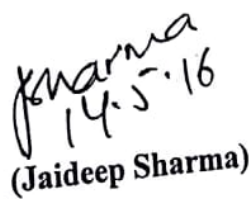 JSharma
14.5.16
(Jaideep Sharma)